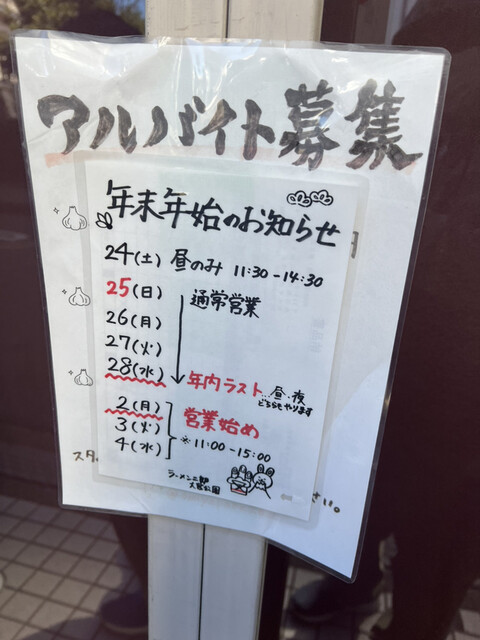 アルバイト募集
年末年始のお知らせ
24(土) 昼のみ 11:30-14:30
25(日) 通常営業
26(月)
27(火)
28(水) 年内ラスト...昼・夜
どちらもやります
2(月) 営業始め
3(火) ※11:00-15:00
4(水)
ラーメン二郎
大宮公園
円
スタ
さい。